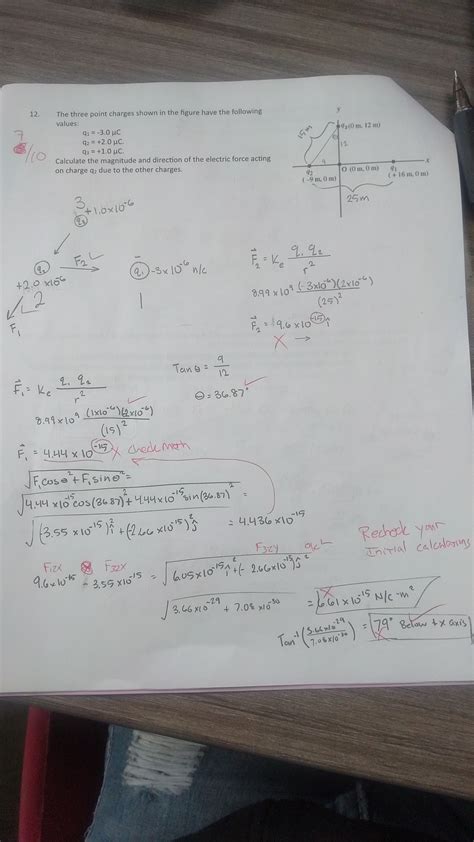 12. The three point charges shown in the figure have the following
values:
q₁ = -3.0 μC
q₂ = +2.0 μC.
q₃ = +1.0 μC.
Calculate the magnitude and direction of the electric force acting
on charge q₂ due to the other charges.
7
/10
y
q₃(0 m, 12 m)
15m
12
9
x
q₂
(-9 m, 0 m)
O (0 m, 0 m)
q₁
(+16 m, 0 m)
25m
3
+1.0x10⁻⁶
q₃
q₂
F₂
+2.0 x10⁻⁶
2
F₁
-
q₁ -3x10⁻⁶ n/c
1
F₂ = Ke q₁ q₂ / r²
8.99 x10⁹ (-3x10⁻⁶)(2x10⁻⁶) / (25)²
F₂ = 9.6 x10⁻¹⁵ i
X →
Tan θ = 9/12
θ = 36.87°
F₁ = Ke q₁ q₂ / r²
8.99x10⁹ (1x10⁻⁶)(2x10⁻⁶) / (15)²
F₁ = 4.44 x 10⁻¹⁵ X check math
√F₁cosθ² + F₁sinθ² =
√4.44x10⁻¹⁵ cos(36.87)² + 4.44x10⁻¹⁵ sin(36.87)² =
√(3.55 x10⁻¹⁵)i² + (-2.66 x10⁻¹⁵)j² = 4.436x10⁻¹⁵
Recheck your
initial calculations
F₁₂ₓ F₃₂ₓ
9.6x10⁻¹⁵ - 3.55x10⁻¹⁵ = √6.05x10⁻¹⁵ i² + (- 2.66x10⁻¹⁵)j²
F₃₂y
√3.66x10⁻²⁹ + 7.08 x10⁻³⁰ = 6.61 x10⁻¹⁵ N/c·m²
Tan⁻¹(3.66x10⁻²⁹ / 7.08x10⁻³⁰) = 79° Below +x axis